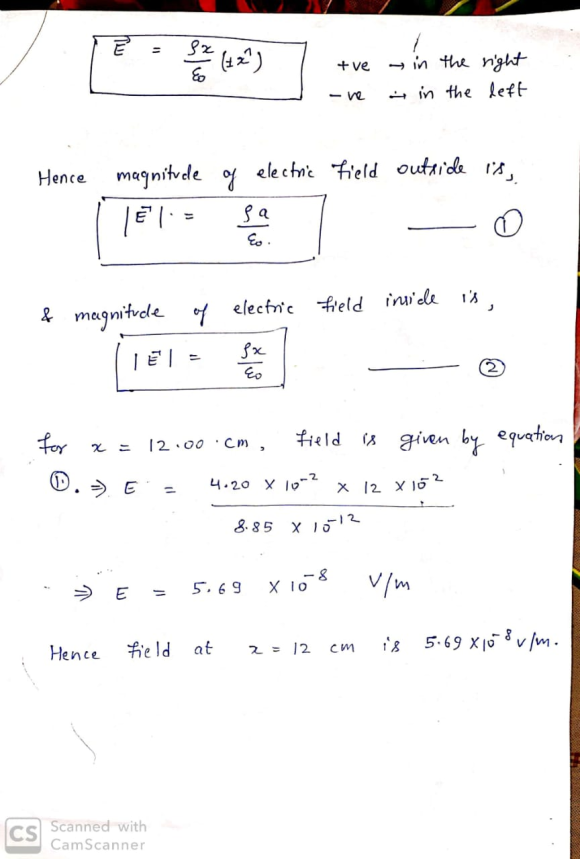 E⃗ = ρx/ε₀ (±x̂)
+ve → in the right
-ve → in the left
Hence magnitude of electric field outside is,
|E⃗| = ρa/ε₀. —— ①
& magnitude of electric field inside is,
|E⃗| = ρx/ε₀ —— ②
for x = 12.00 cm, field is given by equation
①. ⇒ E = 4.20 × 10⁻² × 12 × 10⁻² / 8.85 × 10⁻¹²
⇒ E = 5.69 × 10⁻⁸ V/m
Hence field at x = 12 cm is 5.69 × 10⁻⁸ V/m.
CS Scanned with
CamScanner